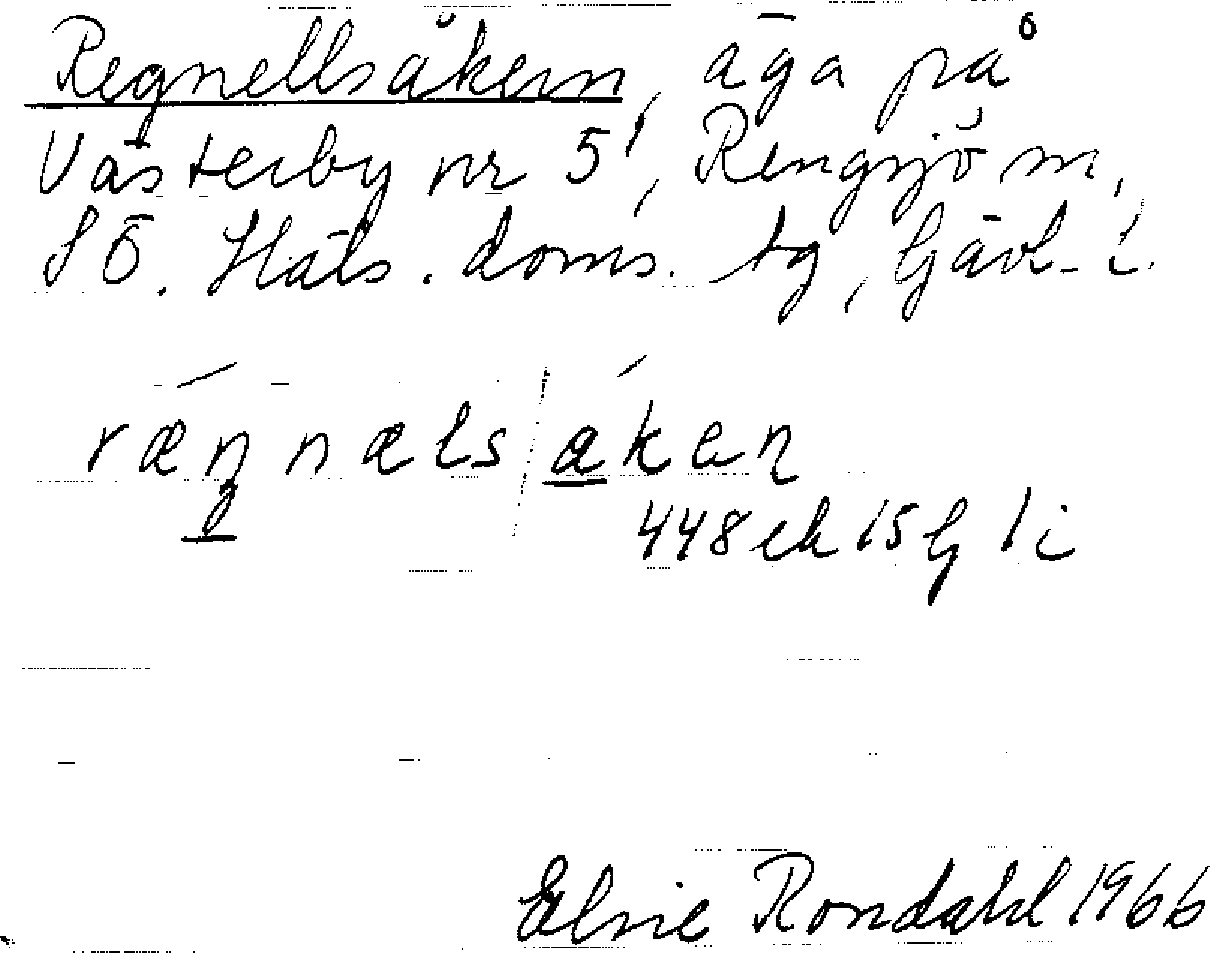 Regnellsåkern, äga på
Västerby nr 5¹, Rengsjö sn,
SÖ. Häls. doms. tg, Gävl. l.
ræŋnæls åkeṇ
448 ek 15 G 1 i
Elsie Rondahl 1966